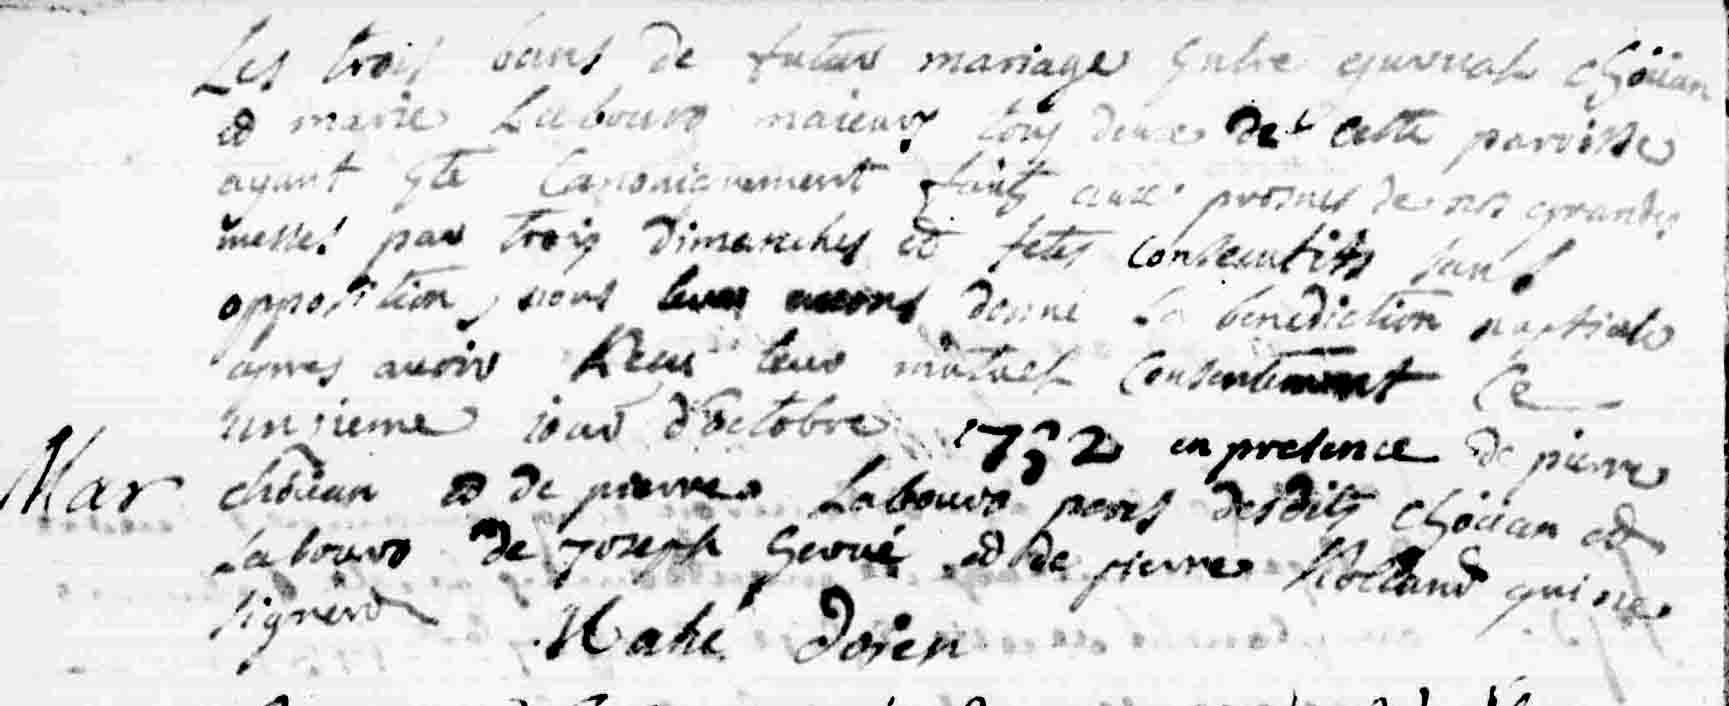 Les trois bans de futur mariage Entre chöüan
et marie Labourd maieurs tous deux de cette paroisse
ayant Eté Canoniquement faits aux prosnes de nos grandes
messes par trois dimanches et fetes consecutifs sans
opposition, nous leur avons donné la benediction nuptiale
apres avoir Receu leur mutuel Consentement Ce
unzieme jour d'octobre 1732 en presence de pierre
Mar chöüan et de pierre Labouro peres desdits chöüan et
Labouro de Joseph Gervé et de pierre Rolland qui ne
signent Mahé Doien